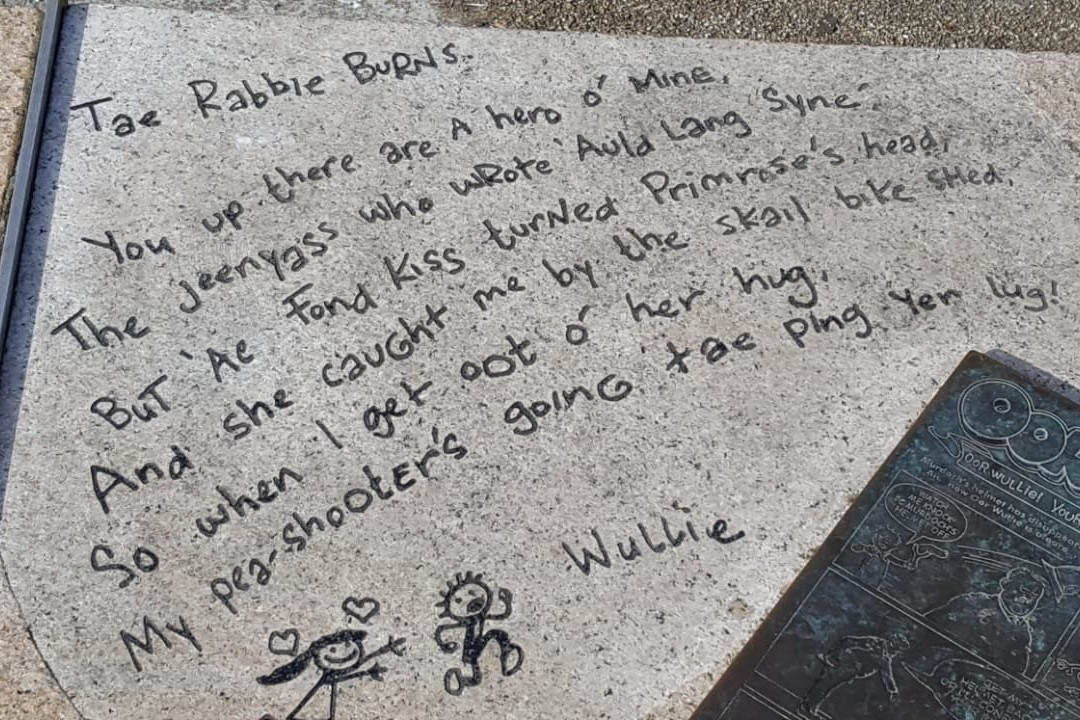 Tae Rabbie BURNS.
You up there are A hero o' Mine,
The jeenyass who wRote 'Auld Lang Syne'.
BuT 'Ae Fond Kiss turNed Primrose's head,
And she cauGht me by the skail bike sHed.
So when I get oot o' her hug,
My pea-shooter's going tae ping yer lug!
Wullie
OOR WULLIE! YOUR
Murdoch's helmet has disappear